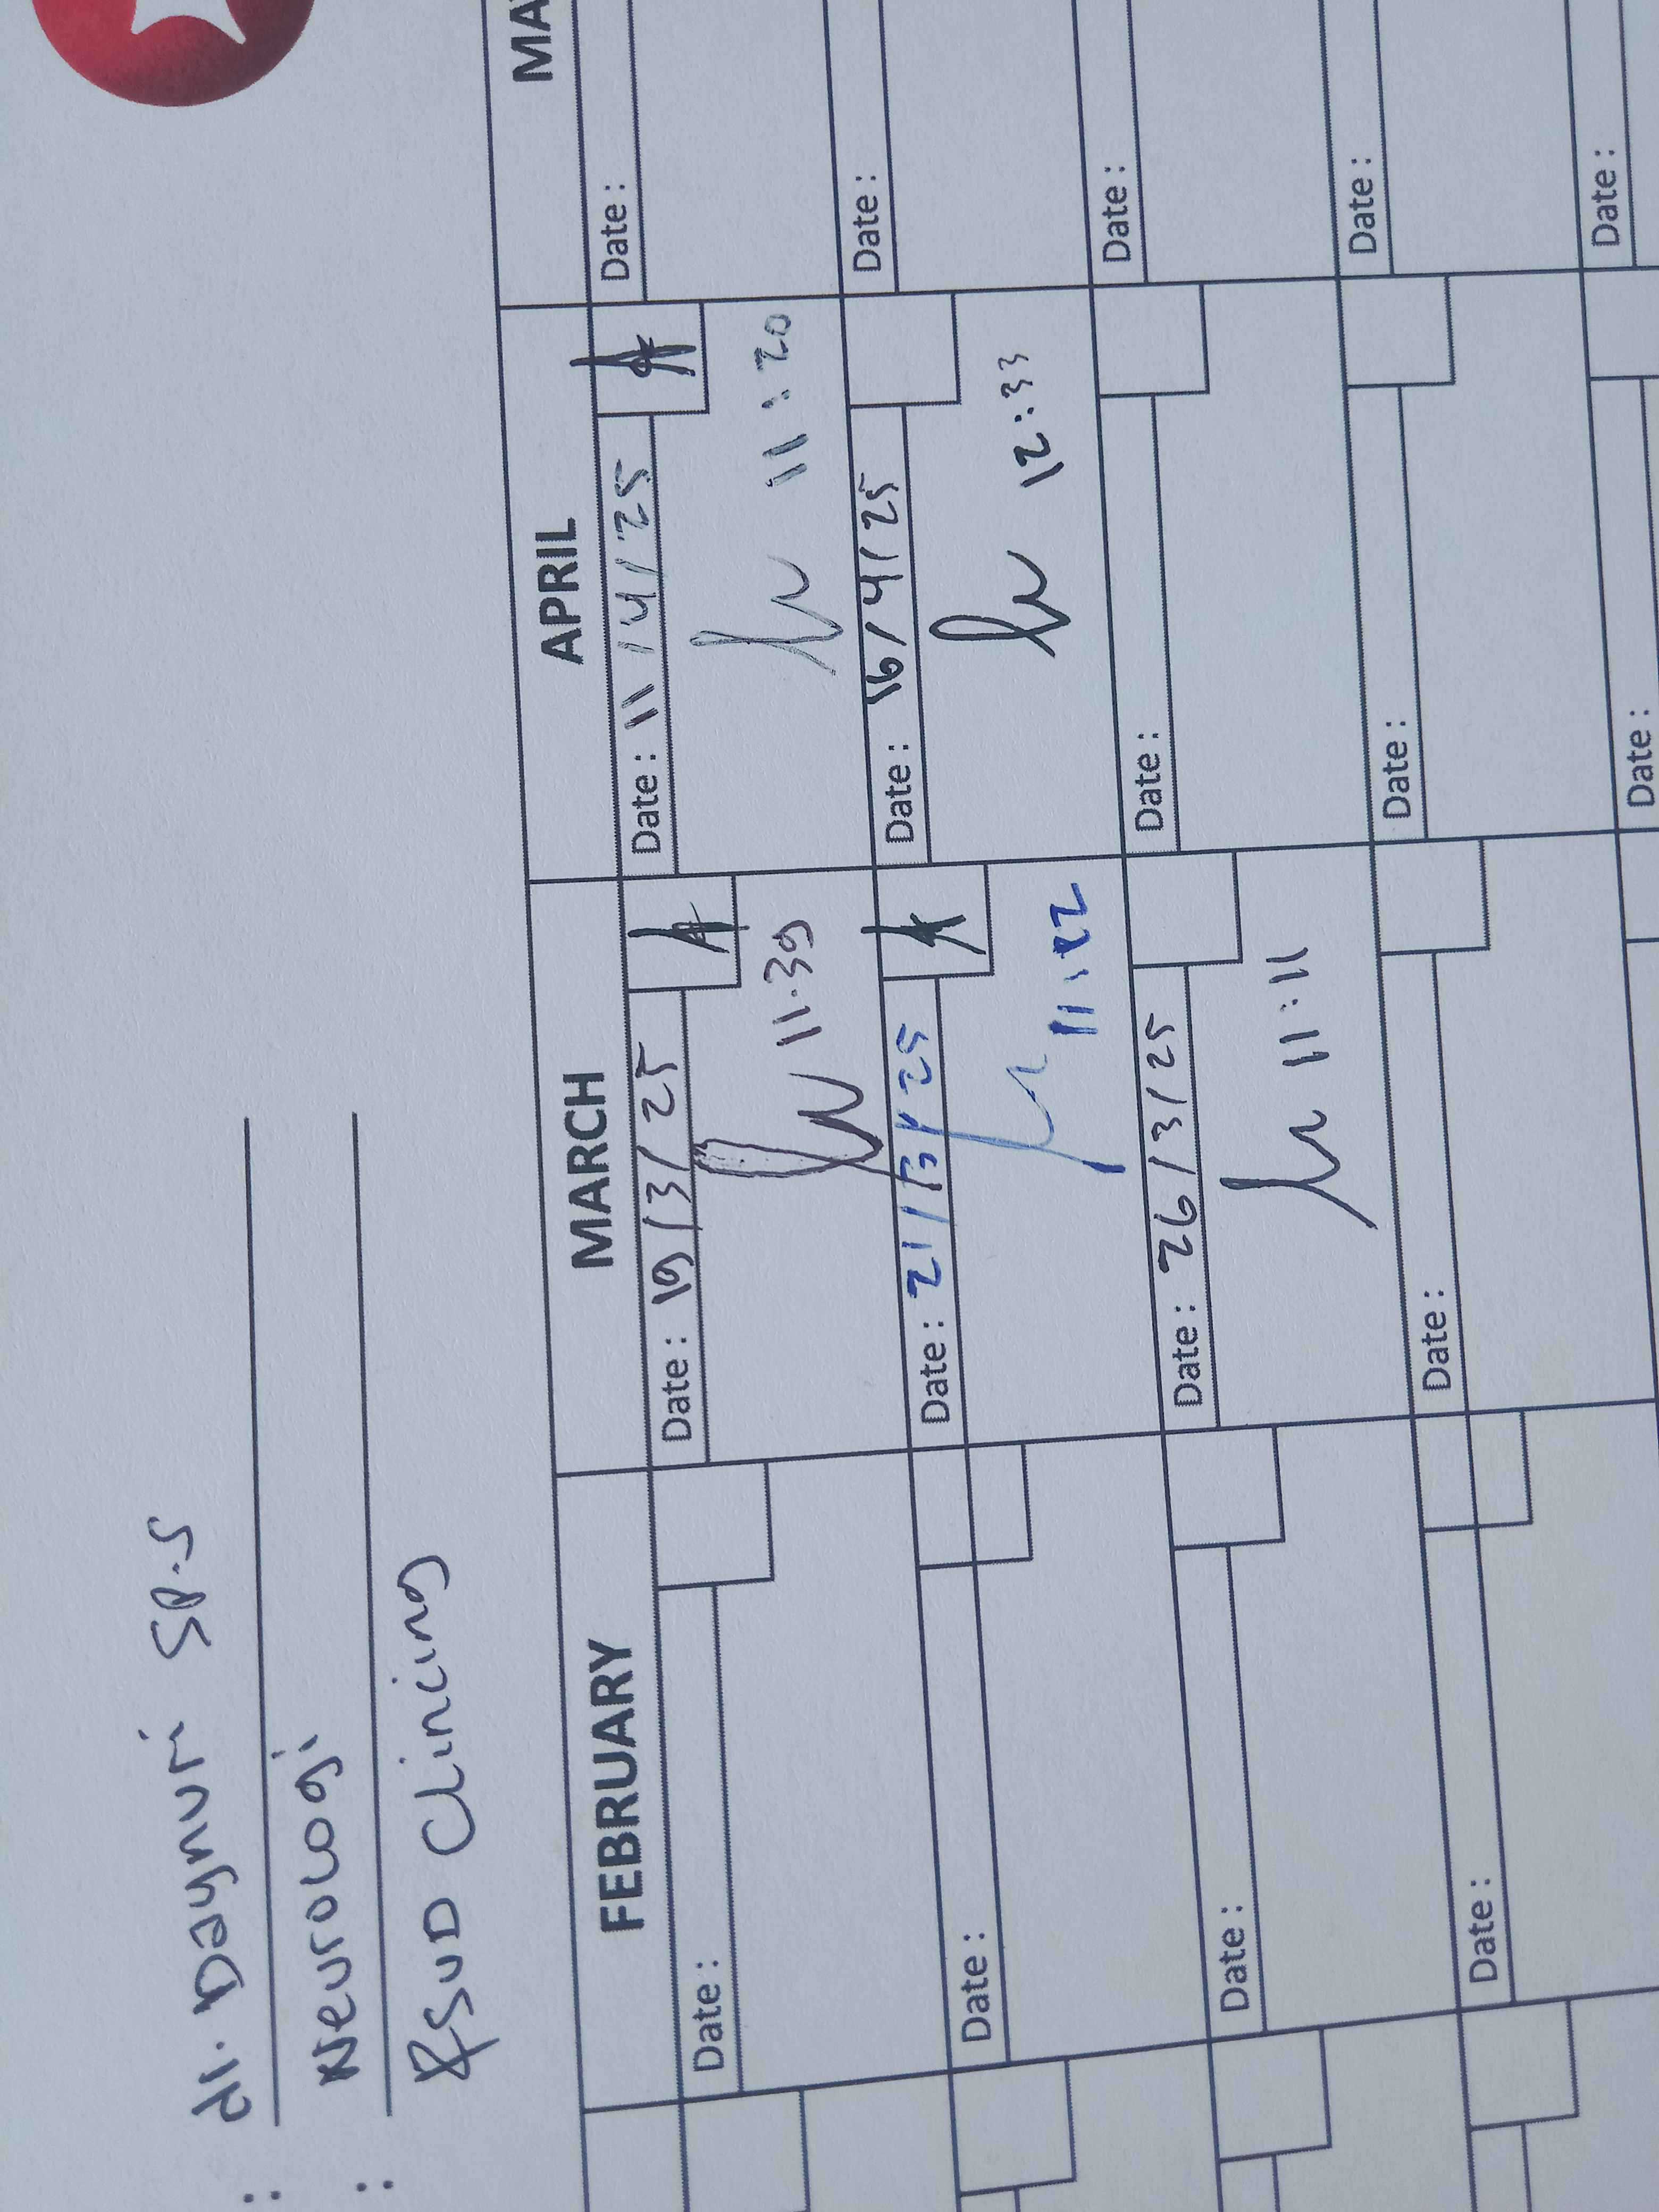 : dr. Daynuri SP.S
: Neurologi
RSUD Clincing
FEBRUARY MARCH APRIL MA
Date : Date : 19/3/25 Date : 11/4/25 Date :
11.39 11:20
Date : Date : 21/3/25 Date : 16/4/25 Date :
12:33
Date : Date : 26/3/25 Date : Date :
11:11
Date : Date : Date : Date :
Date : Date :